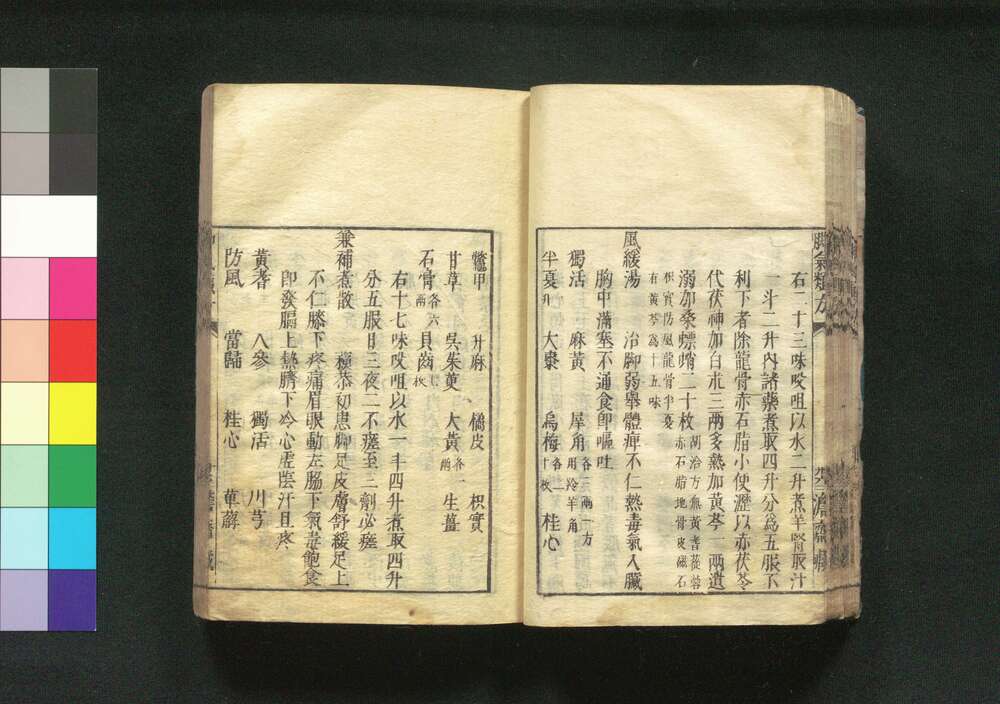 脚氣類方
右二十三味㕮咀以水二升煮羊腎取汁
一斗二升內諸藥煮取四升分爲五服不
利下者除龍骨赤石脂小便澀以赤茯苓
代茯神加白朮三兩多熱加黃芩一兩遺
溺加桑螵蛸二十枚胡洽方無黃耆蓯蓉
赤石脂地骨皮磁石
枳實防風龍骨半夏
有黃芩爲十五味
風緩湯 治脚弱舉體痺不仁熱毒氣入臟
胸中滿塞不通食卽嘔吐
獨活 麻黃 犀角各三兩一方
用羚羊角
半夏升 大棗 烏梅各二
十枚 桂心
鼈甲 升麻 橘皮 枳實
甘草 吳茱萸 大黃各一
兩 生薑
石膏各六
兩 貝齒枚
右十七味㕮咀以水一斗四升煮取四升
分五服日三夜二不瘥至二劑必瘥
兼補煮散 療恭初患脚足皮膚舒緩足上
不仁膝下疼痛眉眼動左脇下氣毒飽食
卽發膈上熱臍下冷心虛陰汗且疼
黃耆 人參 獨活 川芎
防風 當歸 桂心 萆薢